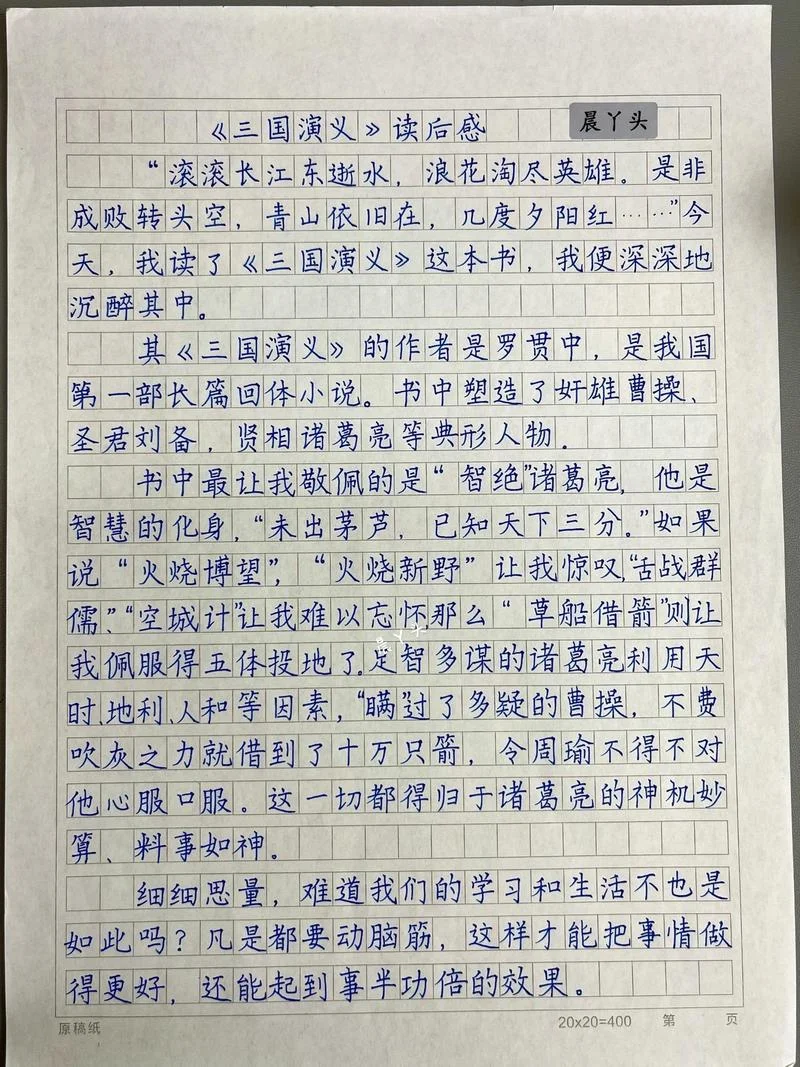 《三国演义》读后感 晨丫头
“滚滚长江东逝水，浪花淘尽英雄。是非
成败转头空，青山依旧在，几度夕阳红……”今
天，我读了《三国演义》这本书，我便深深地
沉醉其中。
其《三国演义》的作者是罗贯中，是我国
第一部长篇回体小说。书中塑造了奸雄曹操、
圣君刘备，贤相诸葛亮等典形人物．
书中最让我敬佩的是“智绝”诸葛亮，他是
智慧的化身，“未出茅芦，已知天下三分。”如果
说“火烧博望”，“火烧新野”让我惊叹，“舌战群
儒”、“空城计”让我难以忘怀那么“草船借箭”则让
我佩服得五体投地了。足智多谋的诸葛亮利用天
时、地利、人和等因素，“瞒”过了多疑的曹操，不费
吹灰之力就借到了十万只箭，令周瑜不得不对
他心服口服。这一切都得归于诸葛亮的神机妙
算、料事如神。
细细思量，难道我们的学习和生活不也是
如此吗？凡是都要动脑筋，这样才能把事情做
得更好，还能起到事半功倍的效果。
原稿纸 20x20=400 第 页
晨丫头